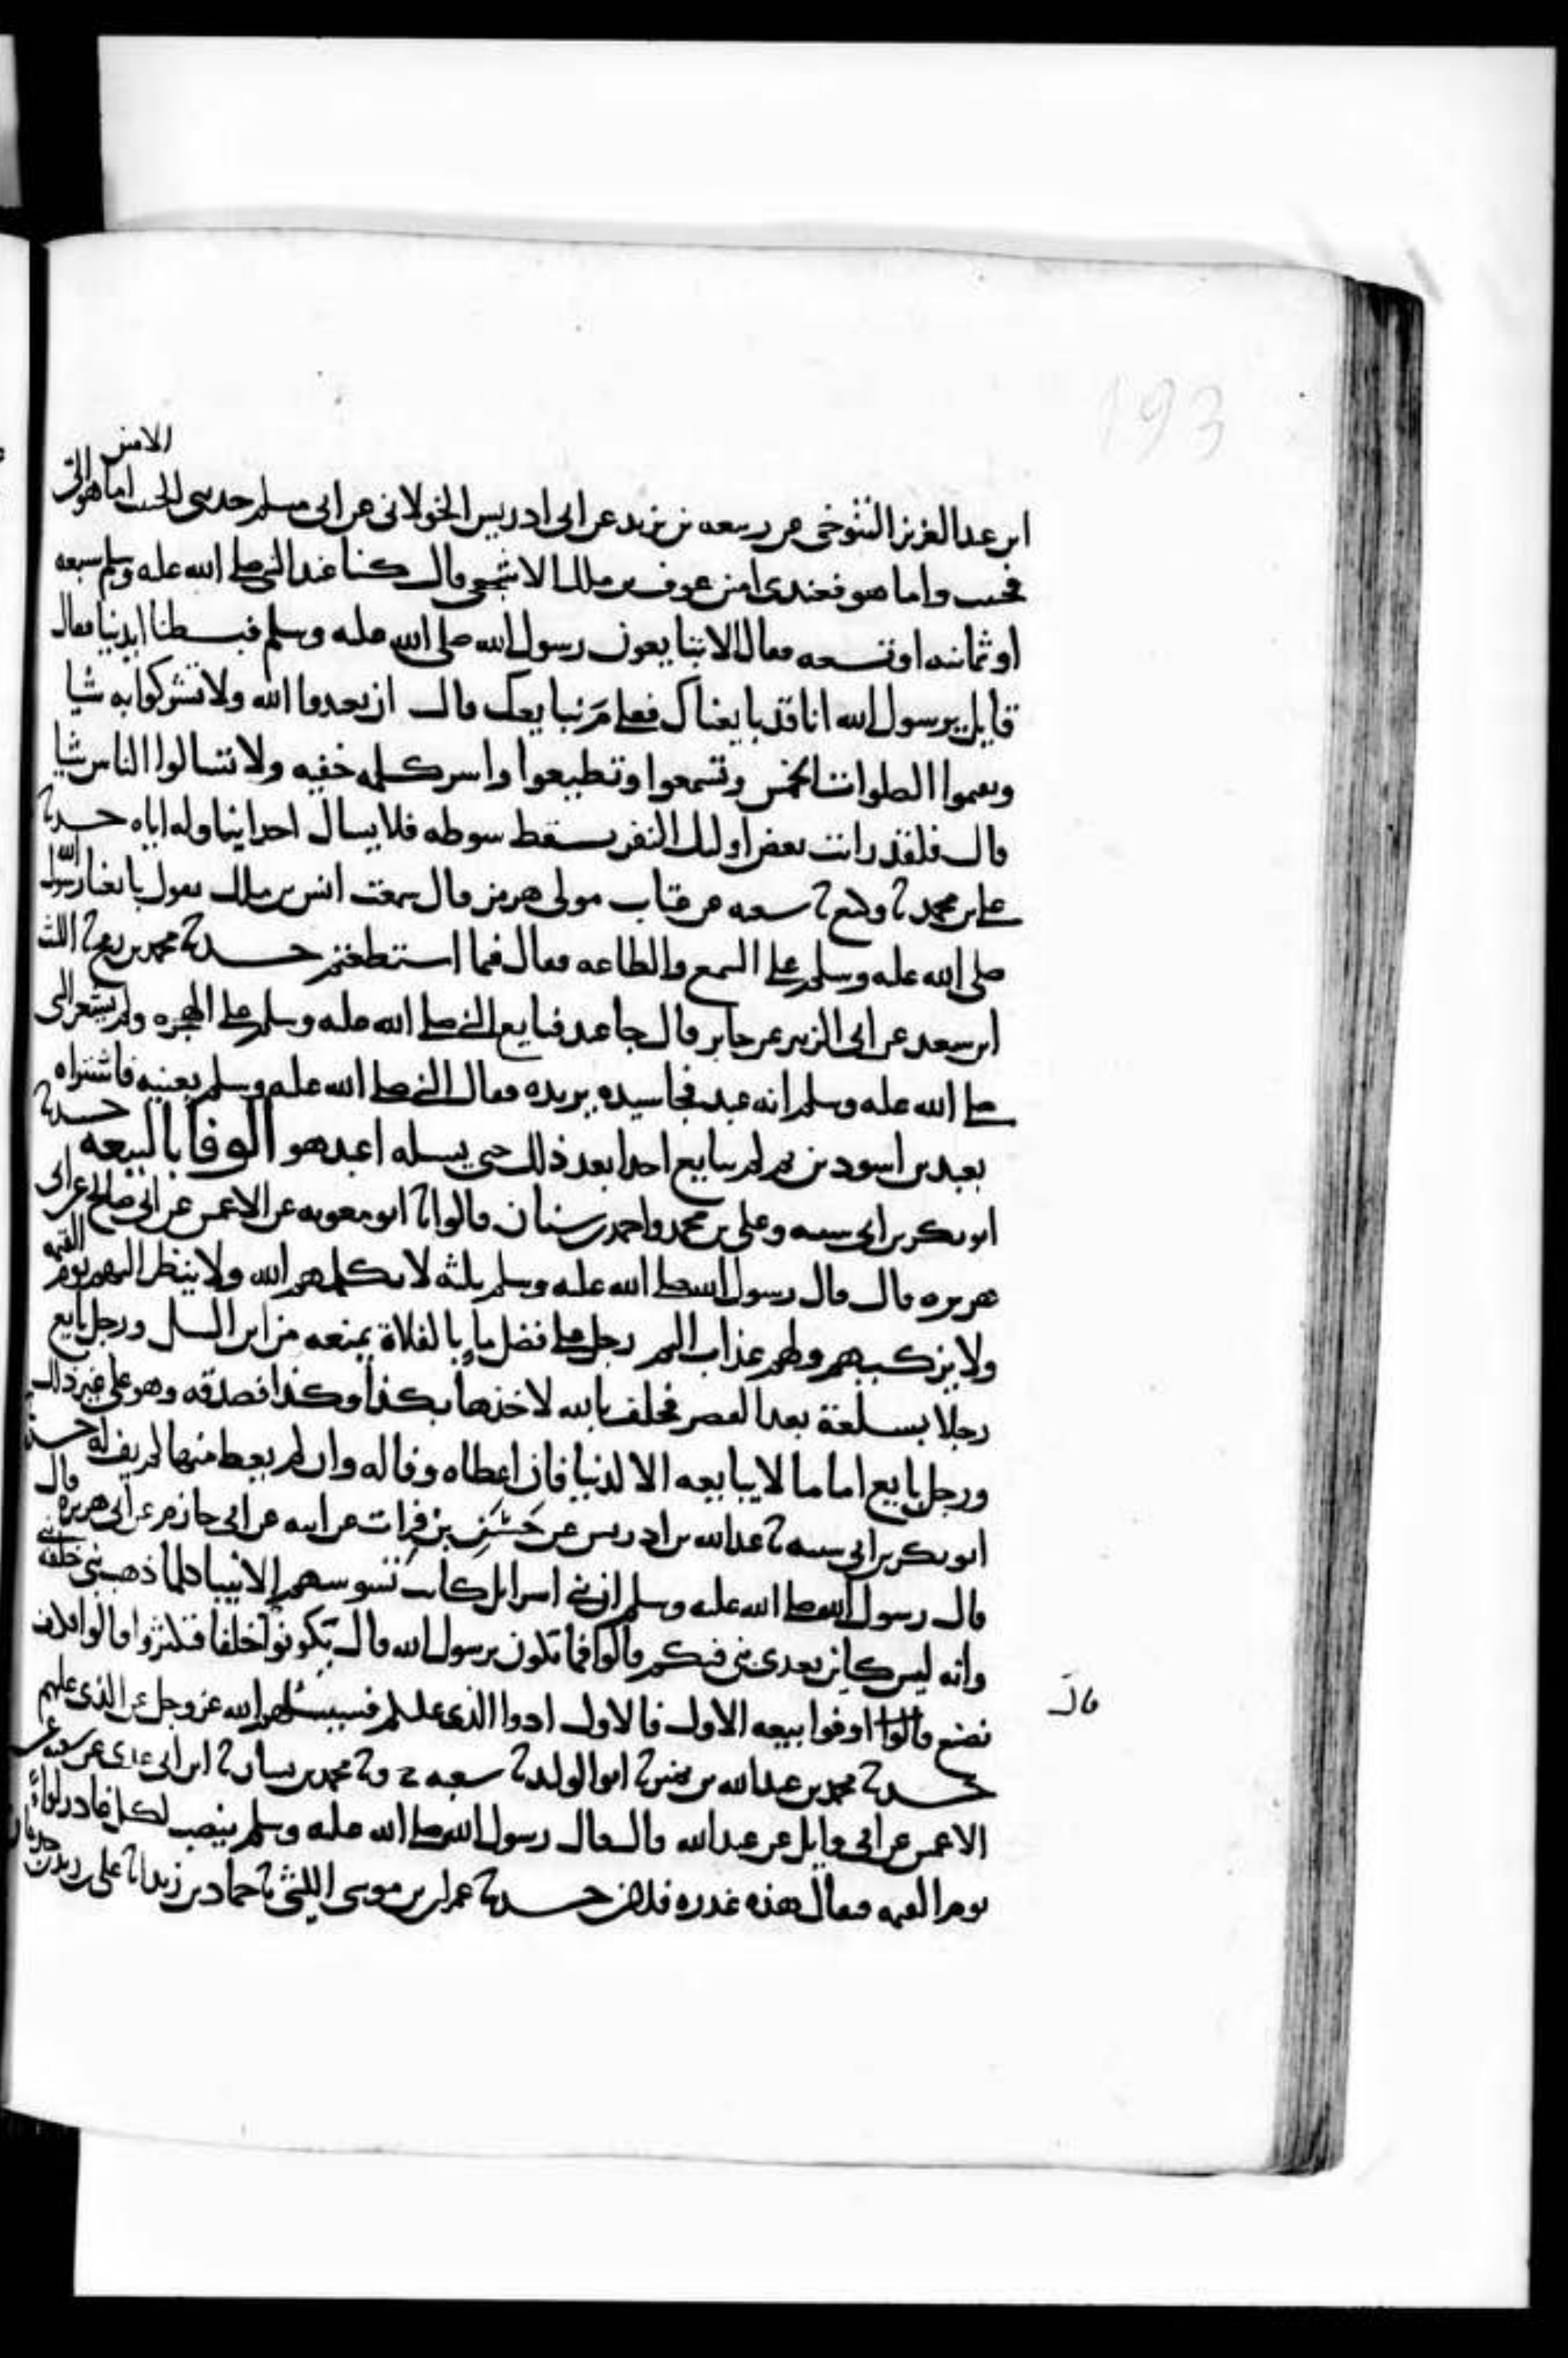 193
الامين
ابن عبد العزيز التنوخي عن ربيعه بن يزيد عن ابي ادريس الخولاني عن ابي مسلم حدثني الحبيب اما هو الي
فحبيب واما هو فعندي امين عوف بن ملك الاشجعي قال كنا عند النبي صلى الله عليه وسلم سبعه
او ثمانيه او تسعه فقال الا تبايعون رسول الله صلى الله عليه وسلم فبسطنا ايدينا فقال
قايل يرسول الله انا قد بايعناك فعلى مَ نبايعك قال ان تعبدوا الله ولا تشركوا به شيا
وتقيموا الصلوات الخمس وتسمعوا وتطيعوا واسر كلمه خفيه ولا تسالوا الناس شيا
قال فلقد رايت بعض اوليك النفر يسقط سوطه فلا يسال احدا يناوله اياه حدثنا
علي بن محمد ثنا وكيع ثنا شعبه عن عتاب مولى هرمز قال سمعت انس بن ملك يقول بايعنا رسول الله
صلى الله عليه وسلم على السمع والطاعه فقال فيما استطعتم حدثنا محمد بن رمح ثنا الليث
ابن سعد عن ابي الزبير عن جابر قال جا عبد فبايع النبي صلى الله عليه وسلم على الهجره ولم يشعر النبي
صلى الله عليه وسلم انه عبد فجا سيده يريده فقال النبي صلى الله عليه وسلم بعنيه فاشتراه
بعبدين اسودين ثم لم يبايع احدا بعد ذلك حتى يسله اعبد هو الوفا بالبيعه حدثنا
ابو بكر بن ابي شيبه وعلي بن محمد واحمد بن سنان قالوا ثنا ابو معويه عن الاعمش عن ابي صالح عن ابي
هريره قال قال رسول الله صلى الله عليه وسلم ثلثه لا يكلمهم الله ولا ينظر اليهم يوم القيمه
ولا يزكيهم ولهم عذاب اليم رجل على فضل ماء بالفلاة يمنعه من ابن السبيل ورجل بايع
رجلا بسلعة بعد العصر فحلف بالله لاخذها بكذا وكذا فصدقه وهو على غير ذلك
ورجل بايع اماما لا يبايعه الا لدنيا فان اعطاه وفا له وان لم يعط منها لم يف له حدثنا
ابو بكر بن ابي شيبه ثنا عبد الله بن ادريس عن حَسَنِ بن فرات عن ابيه عن ابي حازم عن ابي هريره قال
قال رسول الله صلى الله عليه وسلم ان بني اسرايل كانت تسوسهم الانبيا كلما ذهب نبي خلفه نبي
وانه ليس كاين بعدي نبي فيكم قالوا فما تكون يرسول الله قال تكونوا خلفا فتكثروا قالوا فكيف
نصنع قالوا اوفوا ببيعه الاول فالاول ادوا الذي عليكم فسيسئلهم الله عز وجل عن الذي عليهم
قال
حدثنا محمد بن عبد الله بن نمير ثنا ابو الوليد ثنا شعبه ح وثنا محمد بن بشار ثنا ابن ابي عدي عن شعبه عن
الاعمش عن ابي وايل عن عبد الله قال قال رسول الله صلى الله عليه وسلم ينصب لكل غادر لواء
يوم القيمه فيقال هذه غدره فلان حدثنا عمران بن موسى الليثي ثنا حماد بن زيد ثنا علي بن زيد بن جدعان